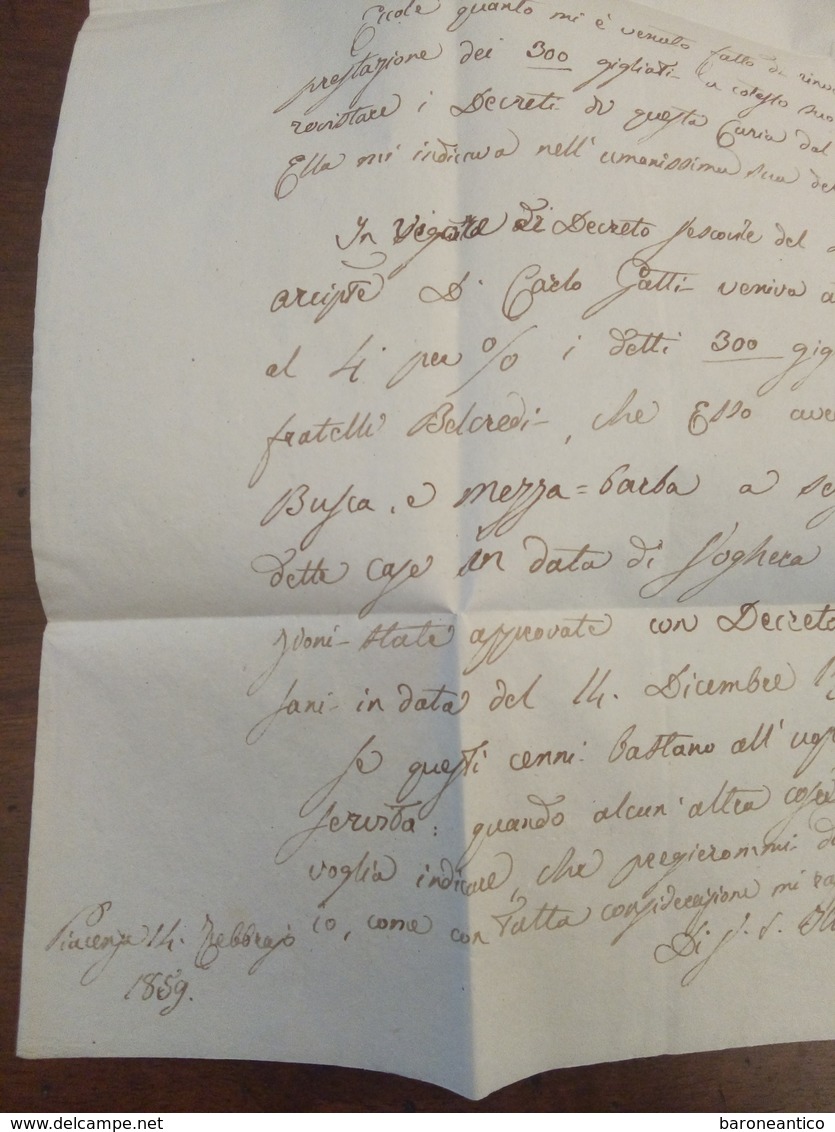 Eccole quanto mi è venuto fatto di
prestazione dei 300 gigliati a cotesto suo
rovistare i Decreti di questa Curia dal
Ella mi indicava nell' umanissima sua
In Decreto Vescovile del
arcipte D. Carlo Gatti veniva
al 4 per % i detti 300
fratelli Belcredi, che Esso
Busca, e Mezza=barba a
dette case in data di Voghera
zioni state approvate con Decreto
sani in data del 14. Dicembre
Se questi cenni bastano all'
servita: quando alcun' altra
voglia indicare, che pregierommi
io, come con tutta considerazione mi
Piacenza 14. Febbrajo
1859.
Di V. S.
https://www.delcampe.net
baroneantico